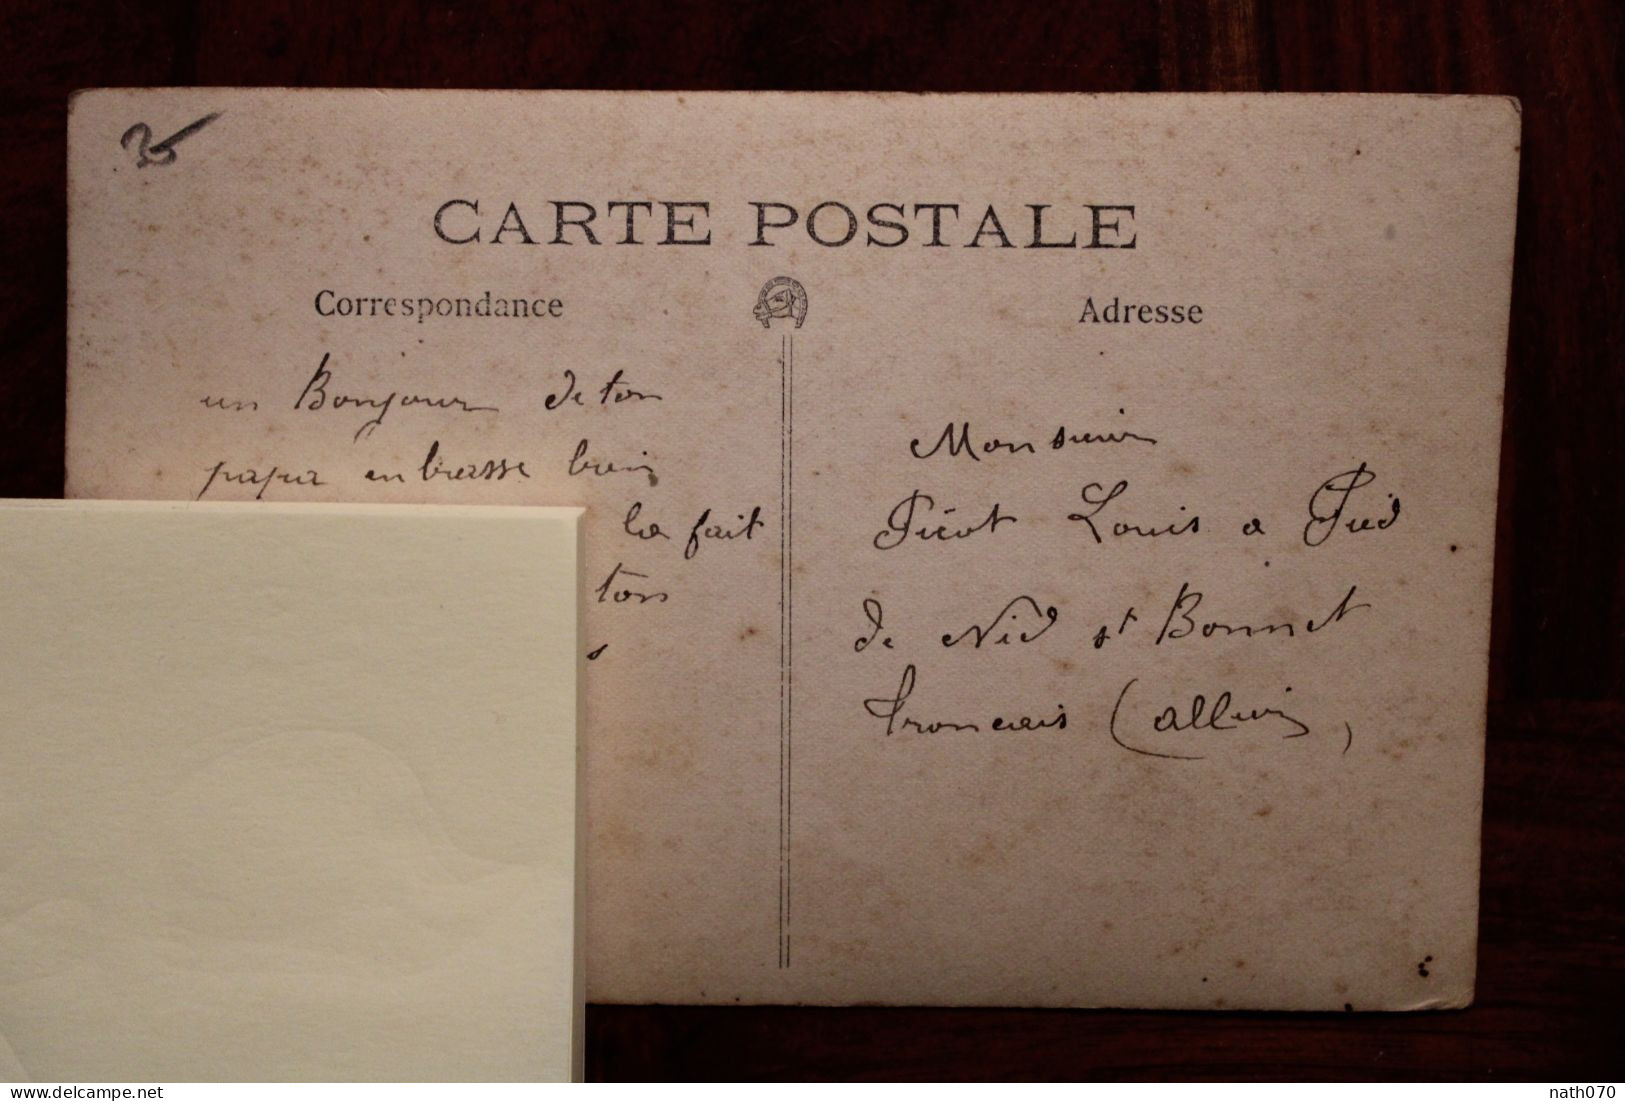 35
CARTE POSTALE
Correspondance
Adresse
un Bonjour de ton
papa en brasse bien
la fait
ton
s
Monsieur
Picot Louis a Pied
de Nid st Bonnet
troncais (allier)
www.delcampe.net
nath070